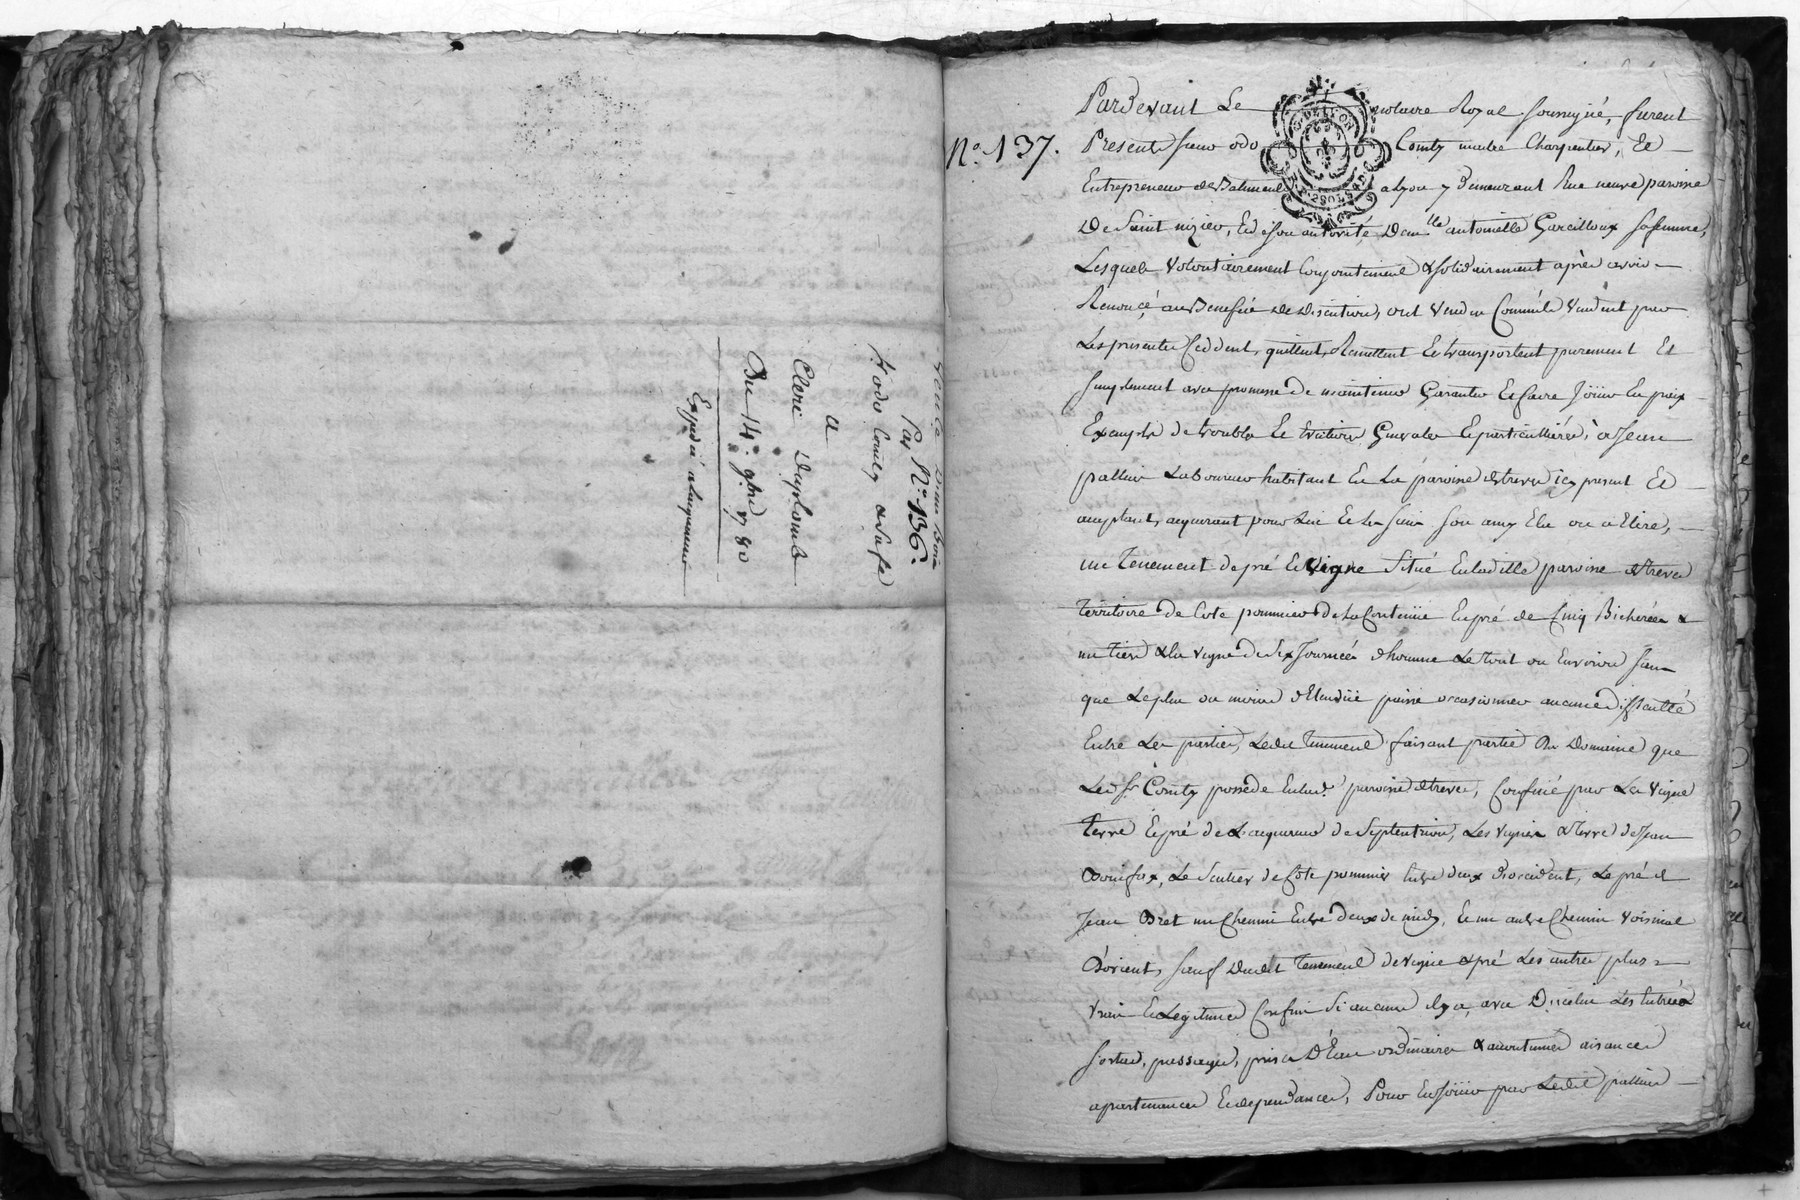 Vente d'un bois
Par N.º 136.
S.r odo Comty & sa fe
a
Claude Duplomb
Du 14. 9bre 1780
Expedié a lacquereur
N.º 137.
Pardevant Le notaire Royal soussigné, furent
Presents sieur odo Comty maitre Charpentier, Et
Entrepreneur de Batiments a Lyon y Demeurant Rue neuve paroisse
De Saint nizier, Et de son autorité Dem.lle antoinette Garcilloux sa femme,
Lesquels volontairement Conjointement & solidairement après avoir
Renoncé au Benefice de Discution, ont vendu Comme ils vendent par
Les presentes Ceddent, quittent, Remettent Et transportent purement Et
simplement avec promesse de maintenir Garantir Et faire Jouir En paix
Exempts de troubles Et Evictions Generales Et particullieres, à Jean
pallin Laboureur habitant En La paroisse de treves icy present Et
acceptant, acquerant pour Lui Et Les siens son amy Elu ou a Elire,
un Tenement de pré Et vigne Situé En ladite paroisse de treves
territoire de Cote pommier De La Contenüe En pré de Cinq Bicherées &
un tiers & La vigne de six Journées d'homme Le tout ou Environ sans
que Le plus ou moins d'Etendüe puisse occasionner aucune difficulté
Entre Les parties, Ledit Tenement faisant partie Du Domaine que
Led. S.r Comty possede En lad.e paroisse de treves, Confiné par La vigne
terre Et pré de L'acquereur de Septentrion, Les vignes & Terre de Jean
Bonifax, Le Sentier de Côte pommier Entre deux d'occident, Le pré de
Jean Bret un Chemin Entre deux de midy, Et un autre Chemin voisinal
D'orient, sauf Dudit Tenement de vigne & pré Les autres plus
vrais Et Legitimes Confins Si aucuns il y a, avec Dicelui Les Entrées
sorties, passages, prises D'Eau ordinaires & accoutumées aisances
apartenances Et dependances, Pour En Jouir par Ledit pallin